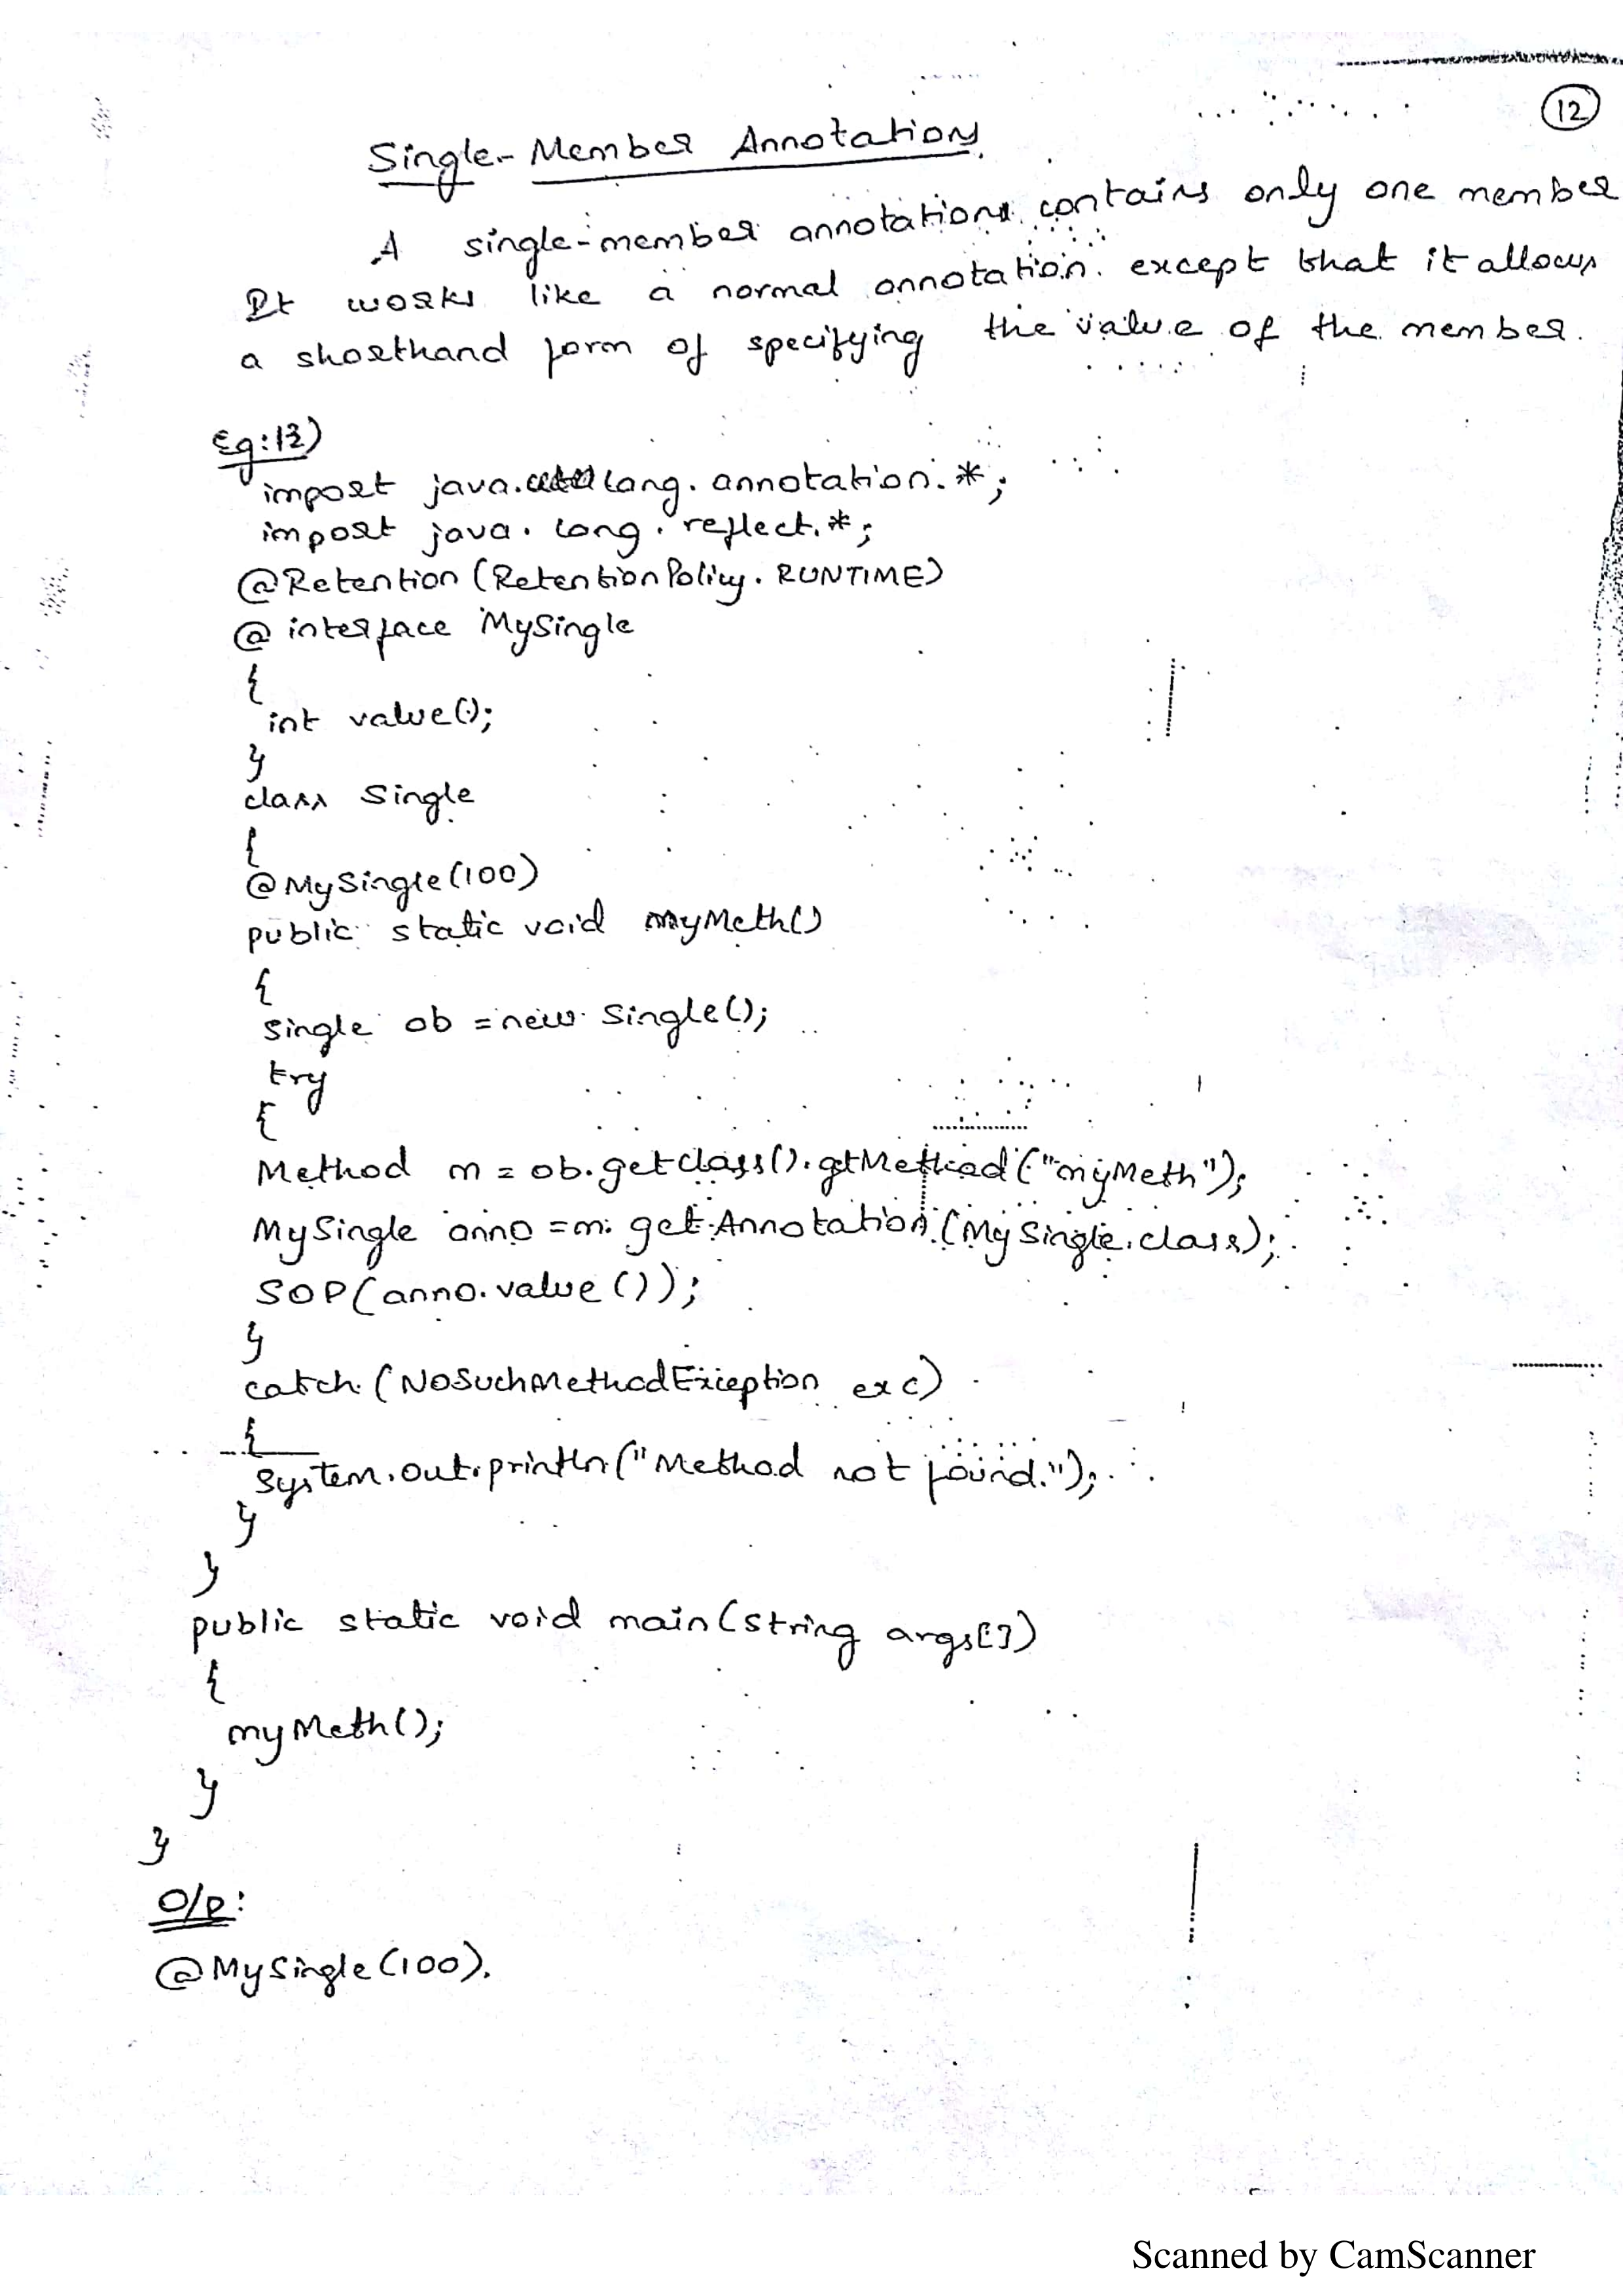 12
Single-Member Annotations
A single-member annotations contains only one member
It works like a normal annotation except that it allows
a shorthand form of specifying the value of the member.
Eg:12)
import java.lang.annotation.*;
import java.lang.reflect.*;
@Retention(RetentionPolicy.RUNTIME)
@interface MySingle
{
int value();
}
class Single
{
@MySingle(100)
public static void myMeth()
{
Single ob = new Single();
try
{
Method m = ob.getclass().getMethod("myMeth");
MySingle anno = m.getAnnotation(MySingle.class);
SOP(anno.value());
}
catch(NoSuchMethodException exc)
{
System.out.println("Method not found.");
}
}
public static void main(String args[])
{
myMeth();
}
}
O/P:
@MySingle(100).
Scanned by CamScanner